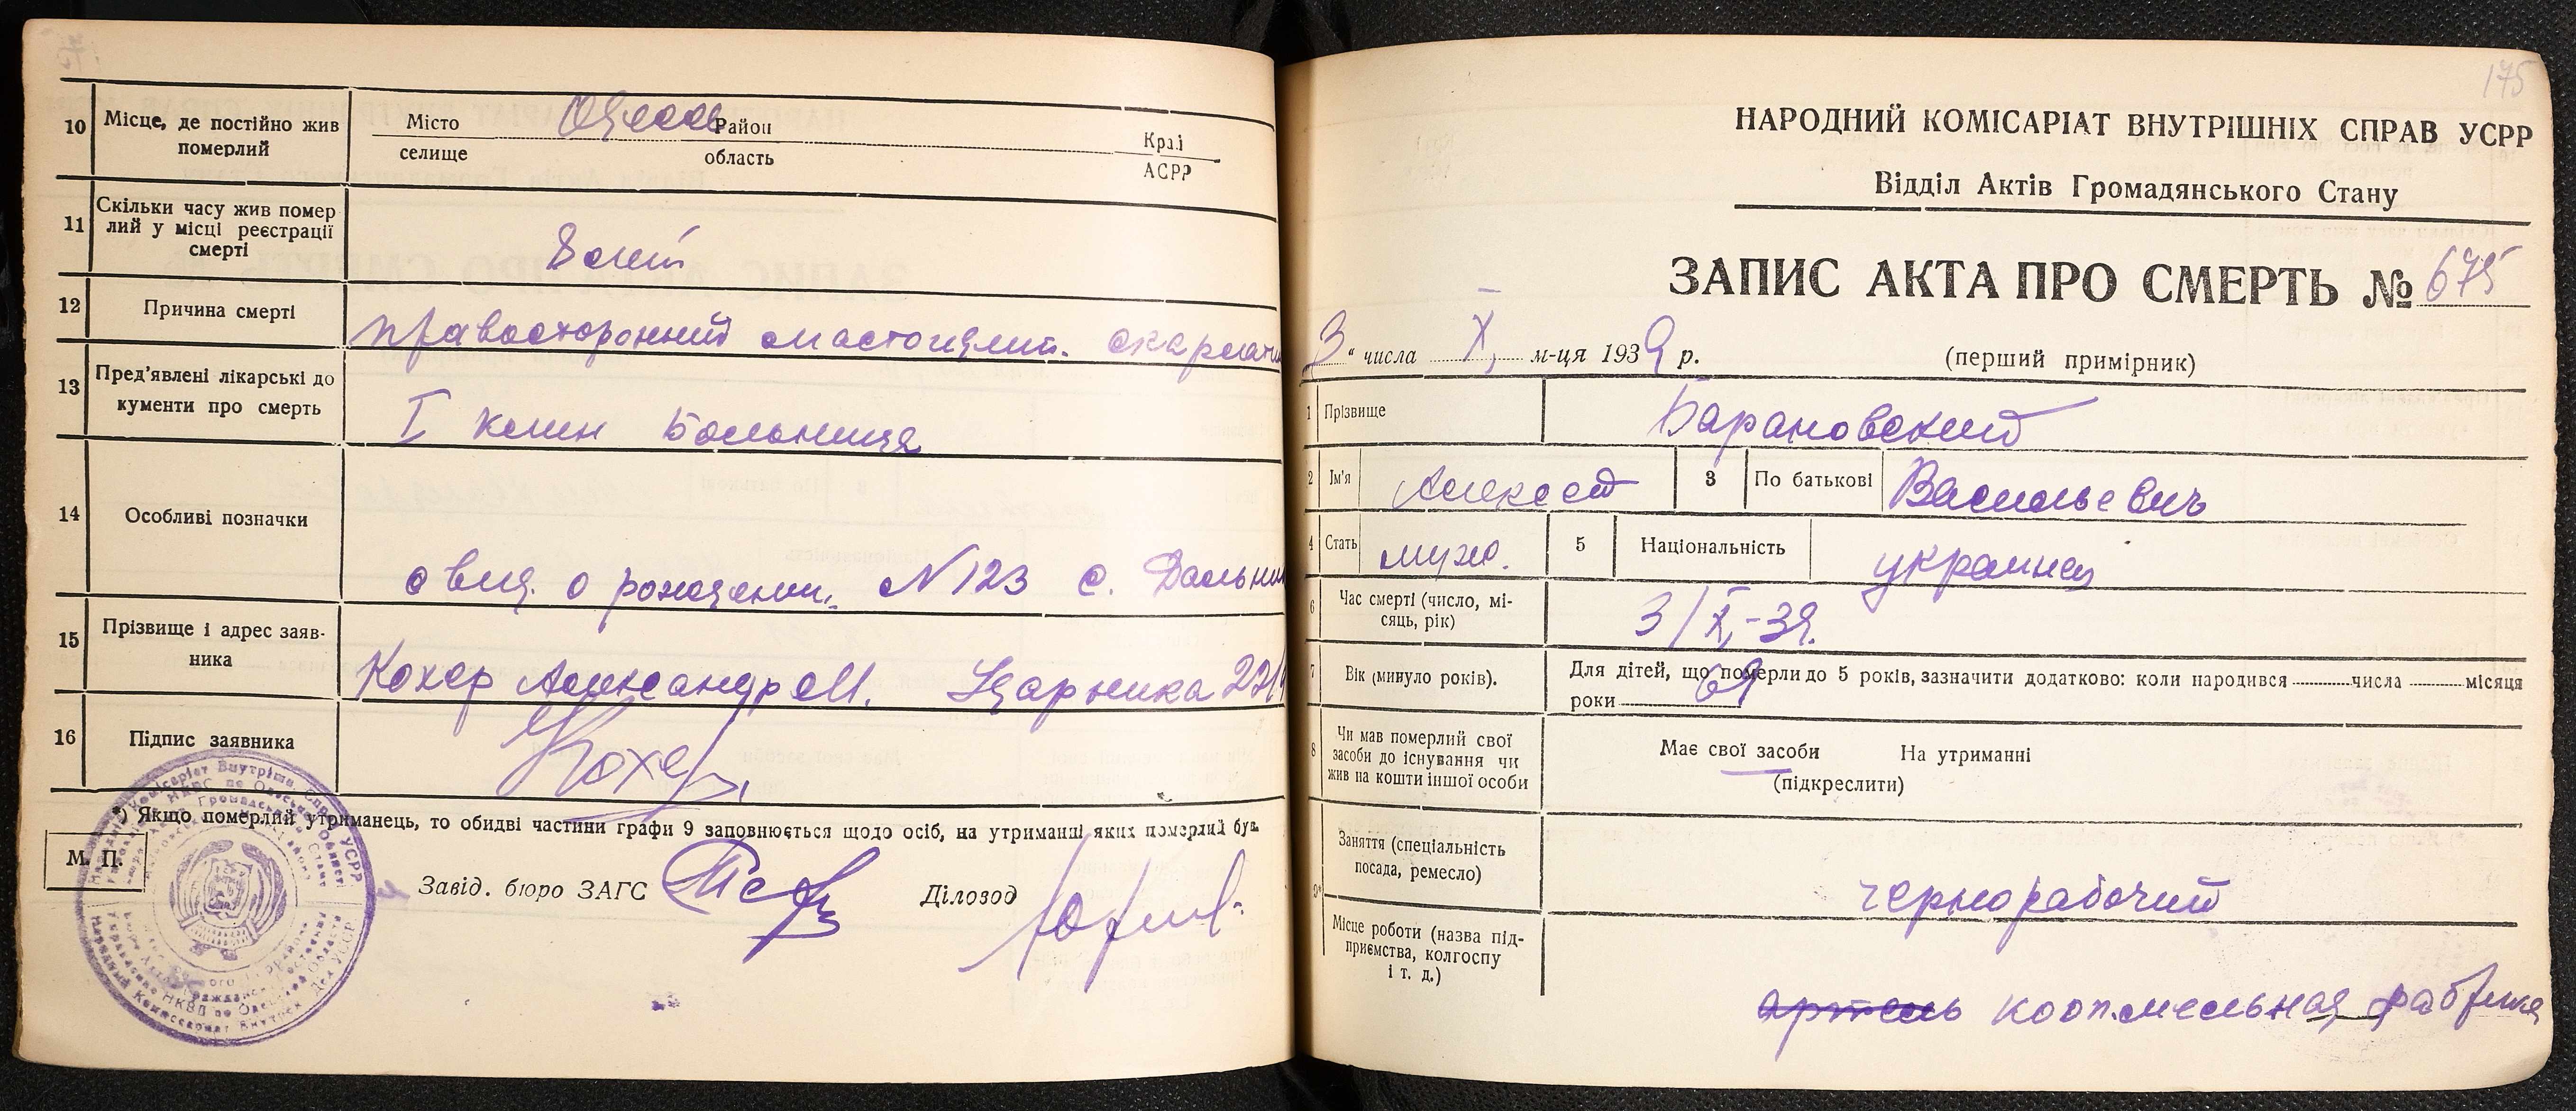 10
Місце, де постійно жив
померлий
Місто Одесса Район Край
селище область АСРР
11
Скільки часу жив помер
лий у місці реєстрації
смерті
8 лет
12
Причина смерті
правосторонний мастоидит.
13
Пред'явлені лікарські до
кументи про смерть
I клин Больница
14
Особливі позначки
свид. о рождении. N 123 с. Дальни
15
Прізвище і адрес заяв-
ника
Кохер Александр М. Ударника
16
Підпис заявника
Кохер
*) Якщо померлий утриманець, то обидві частини графи 9 заповнюється щодо осіб, на утриманні яких померлий був.
М. П.
Завід. бюро ЗАГС
Діловод
175
НАРОДНИЙ КОМІСАРІАТ ВНУТРІШНІХ СПРАВ УСРР
Відділ Актів Громадянського Стану
ЗАПИС АКТА ПРО СМЕРТЬ № 675
3 " числа X, м-ця 1939 р.
(перший примірник)
1 Прізвище Барановский
2 Ім'я Алексей 3 По батькові Васильевич
4 Стать муж. 5 Національність украинец
6 Час смерті (число, мі-
сяць, рік)
3/X-39.
7 Вік (минуло років).
Для дітей, що померли до 5 років, зазначити додатково: коли народився числа місяця
роки 69
8
Чи мав померлий свої
засоби до існування чи
жив на кошти іншої особи
Має свої засоби На утриманні
(підкреслити)
9*
Заняття (спеціальність
посада, ремесло)
чернорабочий
Місце роботи (назва під-
приємства, колгоспу
і т. д.)
артель кооп. мебельная фабрика